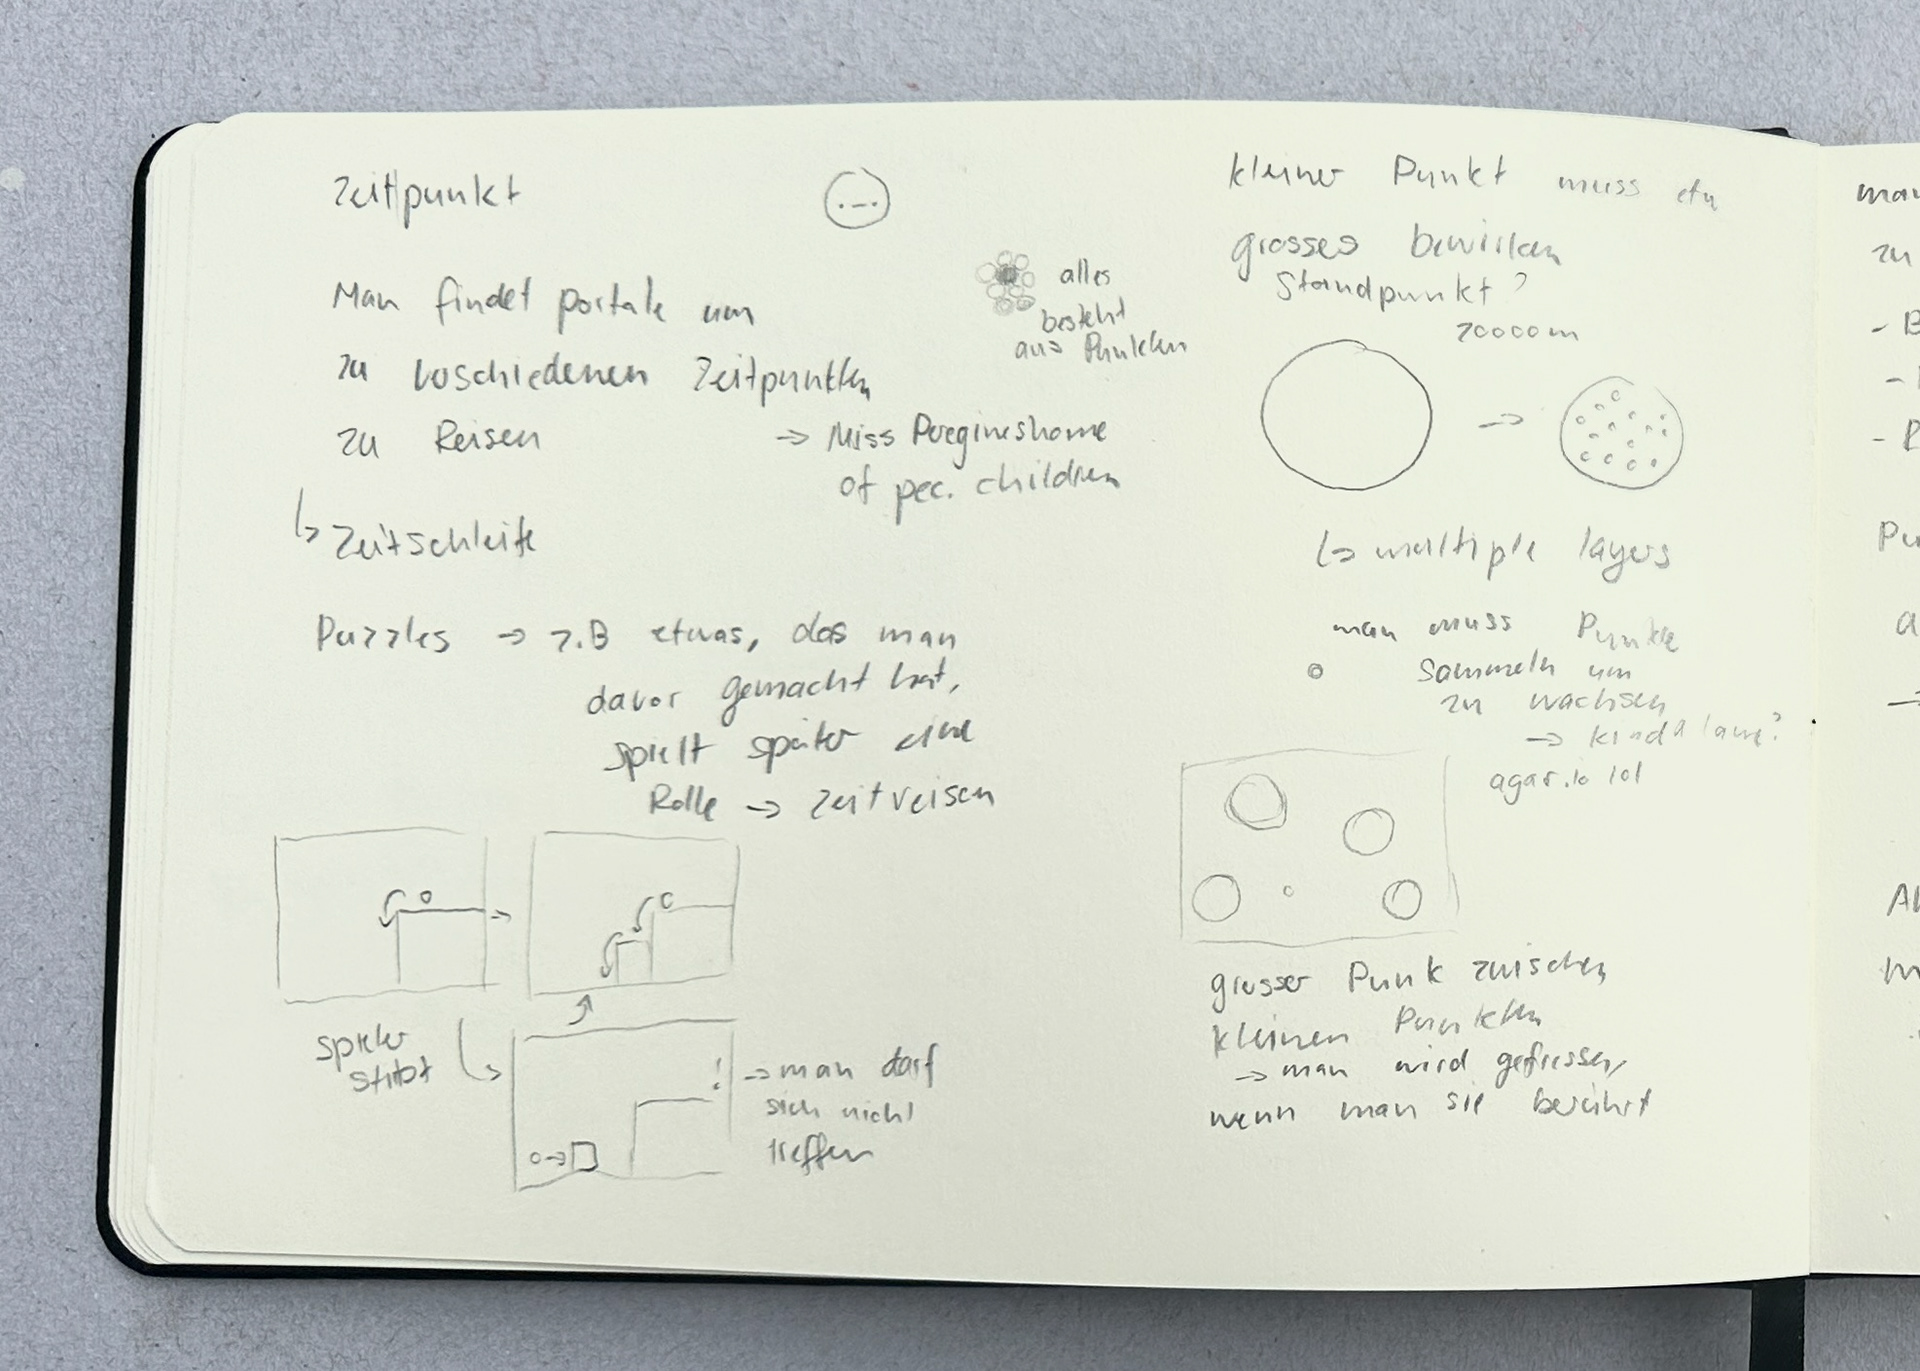 Zeitpunkt
Man findet portale um
zu verschiedenen Zeitpunkten
zu Reisen
↳ Zeitschleife
→ Miss Peregineshome
of pec. children
alles
besteht
aus Punkten
Puzzles → z.B etwas, das man
davor gemacht hat,
spielt später eine
Rolle → Zeitreisen
spieler
stirbt
! → man darf
sich nicht
treffen
kleiner Punkt muss etw
grosses bewirken
Standpunkt?
zoooom
↳ multiple layers
man muss Punkte
sammeln um
zu wachsen
→ kinda lame?
agar.io lol
grosser Punk zwischen
kleinen Punkten
→ man wird gefressen,
wenn man sie berührt
man
zu
- B
-
-
Pu
a
→
Al
m